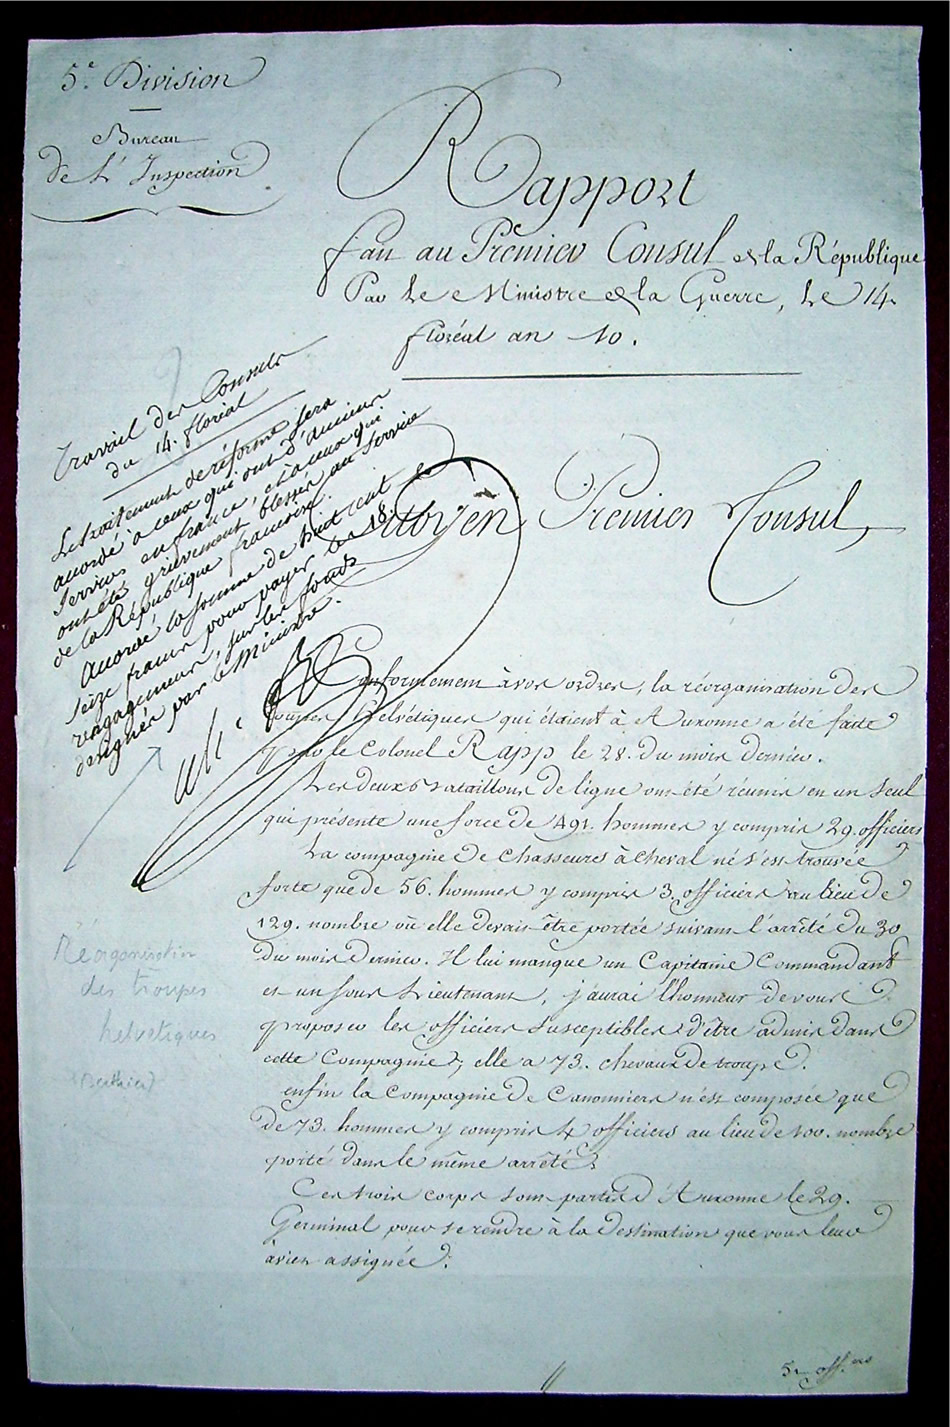 5.e Division
Bureau
De L'Inspection
Rapport
fait au Premier Consul de la République
Par Le Ministre de la Guerre, Le 14
floréal an 10.
Travail des Consuls
du 14. floréal
Le traitement de réforme sera
accordé à ceux qui ont d'anciens
services en france, et à ceux qui
ont été grièvement blessés au service
de la République française.
Accordé la somme de huit cent
seize francs pour payer les 18.
engagemens, sur les fonds
désignés par le Ministre.
Citoyen Premier Consul,
Conformément à vos ordres, la réorganisation des
troupes helvétiques qui étaient à Auxonne a été faite
par le Colonel Rapp le 28. du mois dernier.
Les deux Bataillons de ligne ont été réunis en un seul
qui présente une force de 491. hommes y compris 29. officiers
La compagnie de Chasseurs à cheval ne s'est trouvée
forte que de 56. hommes y compris 3. officiers au lieu de
129. nombre où elle devait être portée suivant l'arrêté du 30
du mois dernier. Il lui manque un Capitaine Commandant
et un sous Lieutenant, j'aurai l'honneur de vous
proposer les officiers susceptibles d'être admis dans
cette Compagnie; elle a 73. chevaux de troupe.
enfin la Compagnie de Canonniers n'est composée que
de 73. hommes y compris 4 officiers au lieu de 100. nombre
porté dans le même arrêté.
Ces trois corps sont partis d'Auxonne le 29.
Germinal pour se rendre à la destination que vous leur
aviez assignée.
Réorganisation
des troupes
helvétiques
(Berthier)